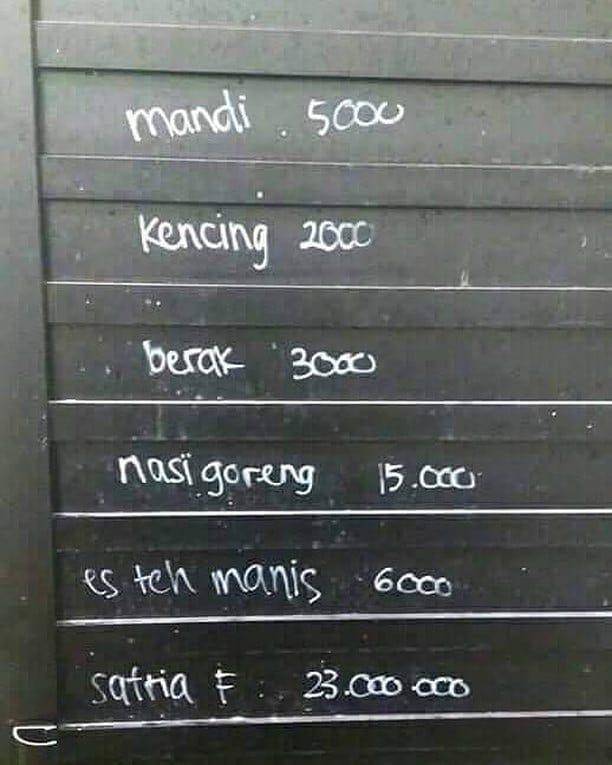 mandi . 5000
kencing 2000
berak 3000
nasi goreng 15.000
es teh manis 6000
satria F 23.000.000